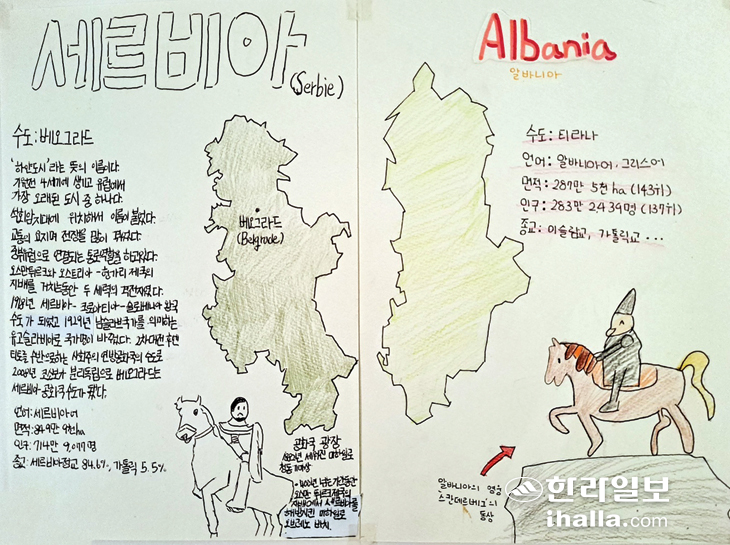 세르비아
(Serbie)
수도: 베오그라드
'하얀도시'라는 뜻의 이름이다.
기원전 4세기에 생기고 유럽에서
가장 오래된 도시 중 하나다.
석회암지대에 위치해서 이름이 붙었다.
교통의 요지며 전쟁을 많이 겪었다.
오스만튀르크와 오스트리아-헝가리 제국의
지배를 거치는동안 두 세력의 격전지였다.
1918년 세르비아-크로아티아-슬로베니아 왕국
수도가 되었고 1929년 남슬라브국가를 의미하는
유고슬라비아로 국가명이 바뀌었다. 2차대전 후엔
티토를 수반으로하는 사회주의 연방공화국 수도로
2008년 코소보가 분리독립으로 베오그라드는
세르비아 공화국수도가 됐다.
언어: 세르비아어
면적: 849만 9천ha
인구: 714만 9,077명
종교: 세르비아정교 84.6%, 가톨릭 5.5%
베오그라드
(Belgrade)
공화국 광장
Albania
알바니아
수도: 티라나
언어: 알바니아어, 그리스어
면적: 287만 5천ha (143위)
인구: 283만 2439명 (137위)
종교: 이슬람교, 가톨릭교 ···
알바니아의 영웅
스칸데르베그의
동상
한라일보
ihalla.com